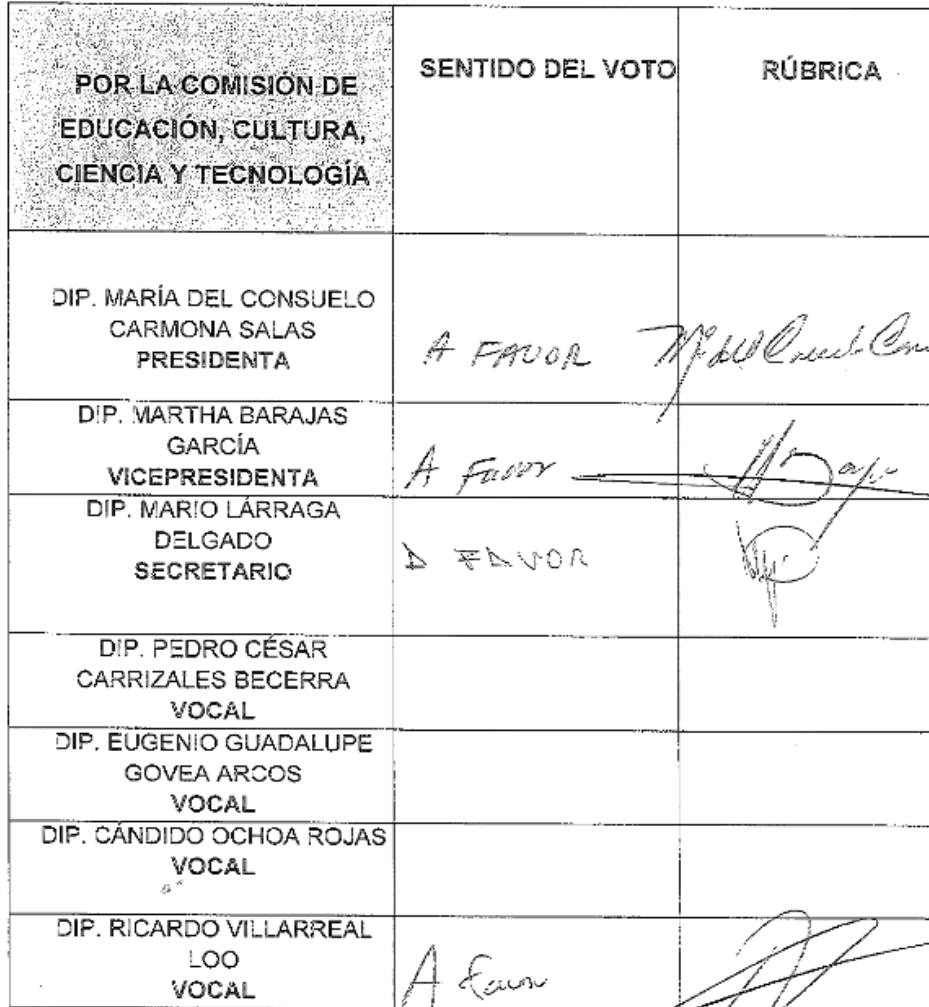 POR LA COMISIÓN DE
EDUCACIÓN, CULTURA,
CIENCIA Y TECNOLOGÍA
SENTIDO DEL VOTO
RÚBRICA
DIP. MARÍA DEL CONSUELO
CARMONA SALAS
PRESIDENTA
A FAVOR
DIP. MARTHA BARAJAS
GARCÍA
VICEPRESIDENTA
A Favor
DIP. MARIO LÁRRAGA
DELGADO
SECRETARIO
A FAVOR
DIP. PEDRO CÉSAR
CARRIZALES BECERRA
VOCAL
DIP. EUGENIO GUADALUPE
GOVEA ARCOS
VOCAL
DIP. CÁNDIDO OCHOA ROJAS
VOCAL
DIP. RICARDO VILLARREAL
LOO
VOCAL
A favor